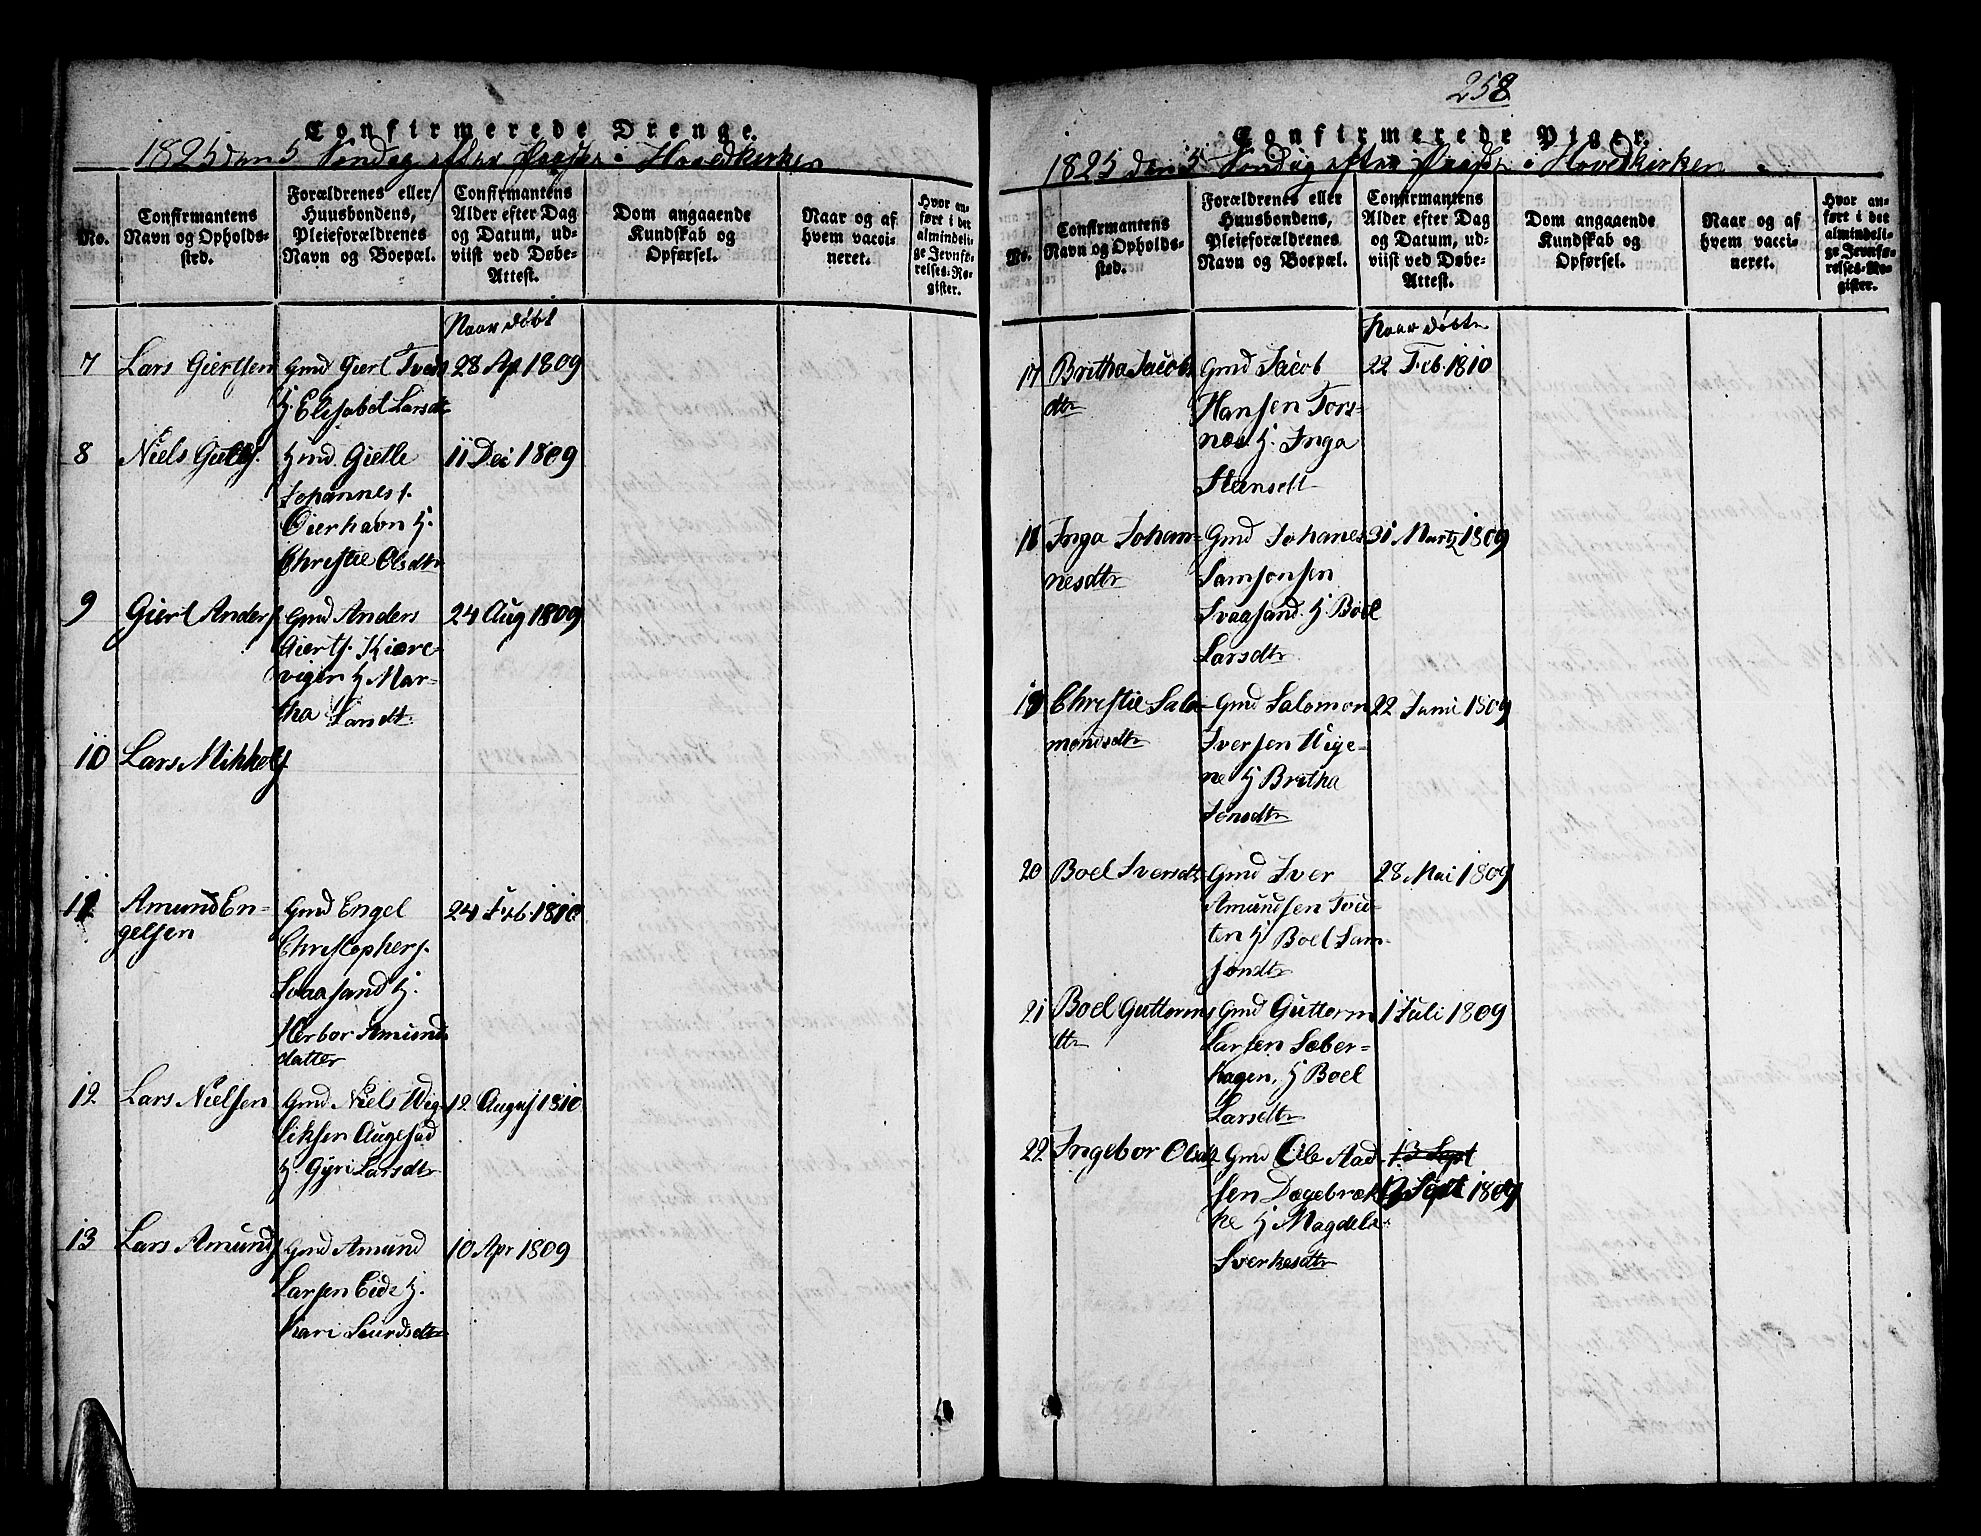 Confirmerede Drenge.
1825 den 5 Søndag efter Paaske i Hovedkirken
No.
Confirmantens
Navn og Opholds-
sted.
Forældrenes eller
Huusbondens,
Pleieforældrenes
Navn og Boepæl.
Confirmantens
Alder efter Dag
og Datum, ud-
viist ved Døbe-
Attest.
Dom angaaende
Kundskab og
Opførsel.
Naar og af
hvem vacci-
neret.
Hvor an-
ført i det
almindeli-
ge Jevnfø-
relses-Re-
gister.
Naar døbt
7 Lars Giertsen
Gmd Giert Tveit
H. Elisabet Larsdt
28 Ap 1809
8 Niels Gietles.
Hmd. Gietle
Johannes.
Oierhavn H.
Christie Olsdtr
11 Dec 1809
9 Giert Anders.
Gmd Anders
Gierts. Kiære-
vigen H Mar-
tha
24 Aug 1809
10 Lars Mikkels.
11 Amund En-
gelsen
Gmd Engel
Christophers.
Svaasand H.
Herbor Amunds
datter
24 Feb. 1810
12 Lars Nielsen
Gmd Niels Wig-
leiksen Augestad
H Gyri Larsdtr
12 August 1810
13 Lars Amunds.
Gmd Amund
Larsen Eide H.
Kari Siurdsdtr
10 Apr 1809
258
Confirmerede Piger.
1825 den 5 Søndag efter Paaske i Hovedkirken
No.
Confirmantens
Navn og Opholds-
sted.
Forældrenes eller
Huusbondens,
Pleieforældrenes
Navn og Boepæl.
Confirmantens
Alder efter Dag
og Datum, ud-
viist ved Døbe-
Attest.
Dom angaaende
Kundskab og
Opførsel.
Naar og af
hvem vacci-
neret.
Hvor an-
ført i det
almindeli-
ge Jevnfø-
relses-Re-
gister.
Naar døbt
17 Britha Jacobs
dtr
Gmd Jacob
Hansen Tors-
næs H. Inga
Steensdt
22 Feb. 1810
18 Inga Johan-
nesdtr
Gmd Johanes
Samsonsen
Svaasand. H Boel
Larsdtr
31 Martz 1809
19 Christie Salo-
mondsdtr
Gmd Salomon
Iversen Wige-
ne H Britha
Jonsdtr
22 Junii 1809
20 Boel Iversdt
Gmd Iver
Amundsen Tveit-
ten H Boel Sam-
sondtr
28 Mai 1809
21 Boel Guttorms
dtr
Gmd Guttorm
Larsen Sæber-
hagen, H Boel
Larsdtr
1 Juli 1809
22 Ingebor Olsdt
Gmd Ole Aad-
sen Dægebræk-
ke H Magdela
Sverkesdtr
13 Sept
12 Sept 1809